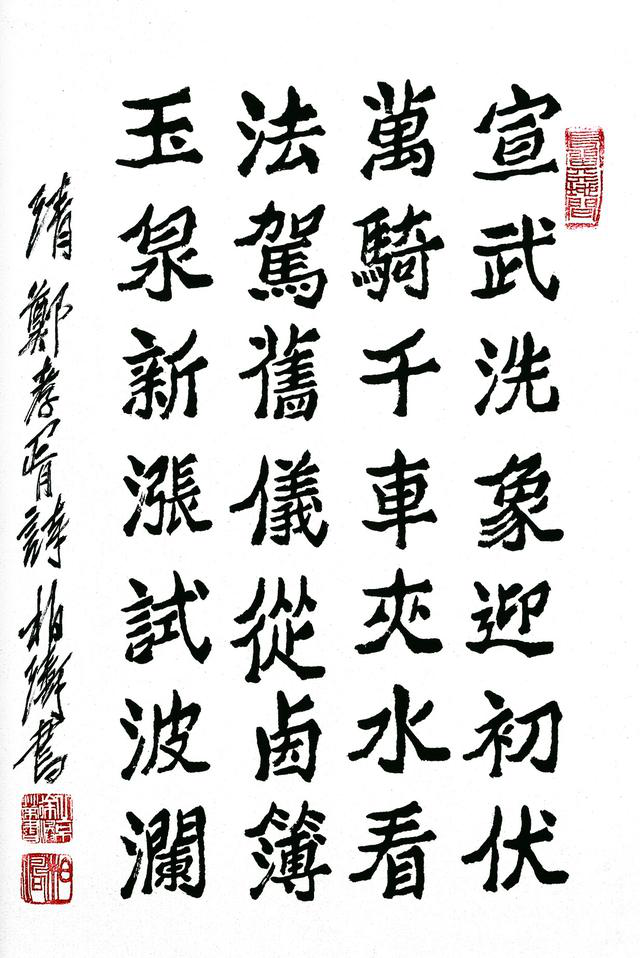 宣武洗象迎初伏
萬騎千車夾水看
法駕舊儀從鹵簿
玉泉新漲試波瀾
清鄭孝胥詩 柏濤書